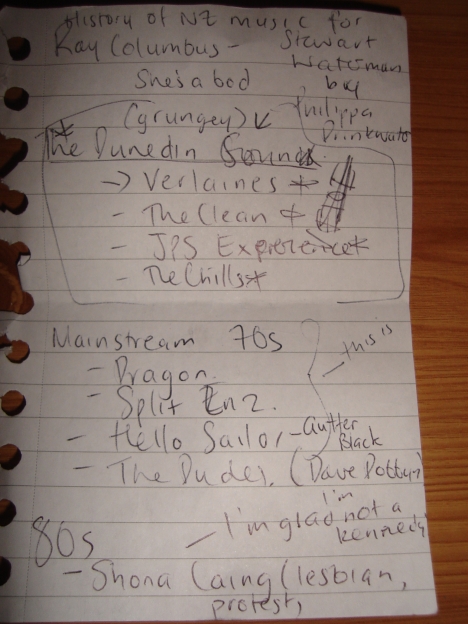 History of NZ music for
Stewart
Waterman
by
Philippa
Drinkwater
Ray Columbus -
She's a bod
(grungey)
* The Dunedin Sound.
→ Verlaines *
- The Clean *
- JPS Experience *
- The Chills *
Mainstream 70s
- this is
- Dragon.
- Split Enz.
- Hello Sailor - Gutter
Black
- The Dudes. (Dave Dobbyn)
80s
- I'm glad I'm not a
Kennedy
- Shona Laing (lesbian,
protest,